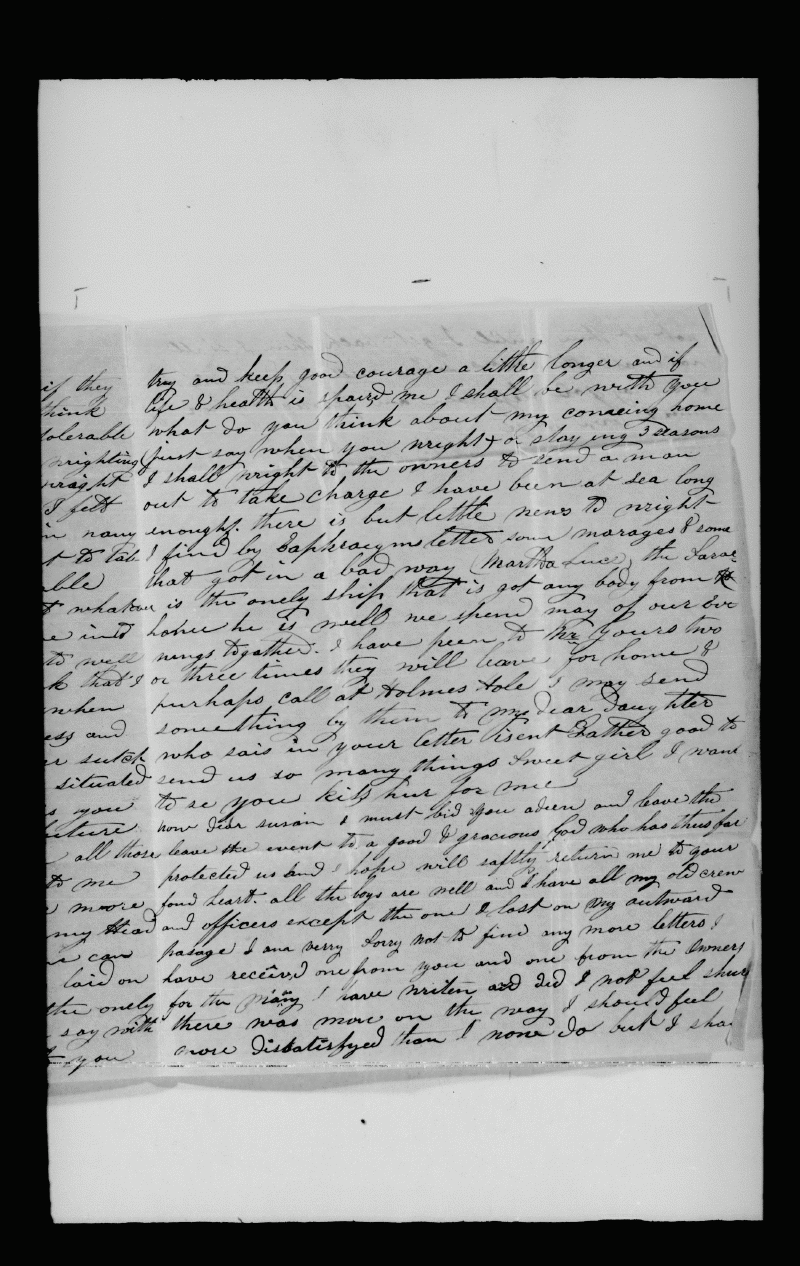 if they try and keep good courage a little longer and if
think life & health is spaired me I shall be with you
tolerable what do you think about my comeing home
wrighting (just say when you wright) or stay ing 3 seasons
wraght I shall wright to the owners to send a man
I felt out to take charge I have been at sea long
in many enoughf. there is but little news to wright
t to tab I find by Eaphraeym letter some marages & some
ble that got in a bad way (Martha Luce) the
t whatever is the onely ship that is got any body from
e into home he is well we spend many of our eve
to well nings together. I have been to yours two
k that I or three times they will leave for home &
when purhaps call at Holmes Hole I may send
ess and something by them to my dear Daughter
er sutch who sais in your letter isent Father good to
situated send us so many things Sweet girl I want
s you to se you kiss hur for me
future now dear susan I must bid you adieu and leave the
all those leave the event to a good & gracious God who has thus far
to me protected us and I hope will saftly return me to your
e moore fond heart. all the boys are well and I have all my old crew
my Head and officers except the one I lost on my outward
can pasage I am verry Sorry not to find any more letters I
laid on have received one from you and one from the Owners
the onely for the many I have writen and did I not feel shure
say with there was more on the way I should feel
t you more disatisfyed than I none do but I sha